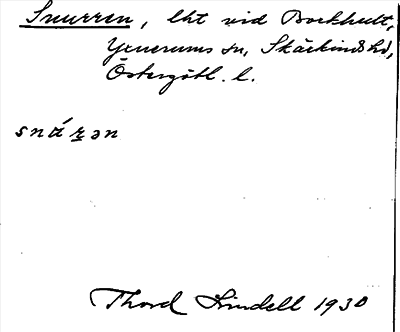 Snurren, lht vid Borkhult,
Yxnerums sn, Skärkinds hd,
Östergötl. l.
sná̱rən
Thord Lindell 1930